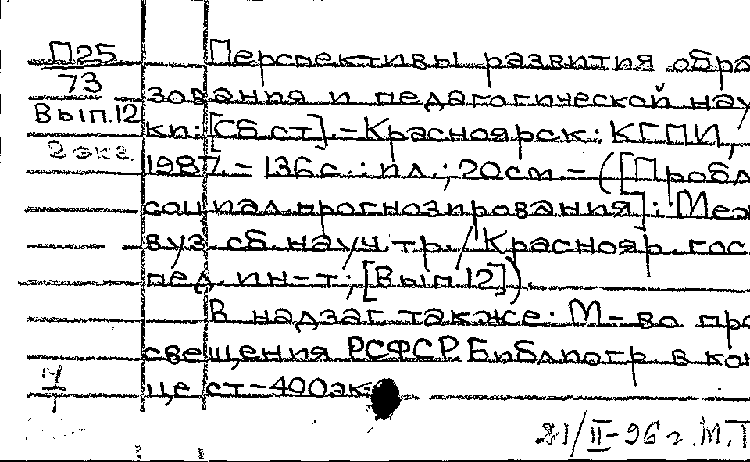 П25 Перспективы развития обра
73 зования и педагогической нау
Вып.12 ки: [Сб.ст]. - Красноярск: КГПИ,
2 экз. 1987. - 136с.: ил.; 20см. - ([Пробл.
социал.прогнозирования]: Меж
вуз. сб. науч. тр. / Краснояр. гос.
пед. ин-т; [Вып.12]).
В надзаг. также: М-во про
свещения РСФСР. Библиогр. в кон
це ст - 400эк
21/II-96г. М.Т